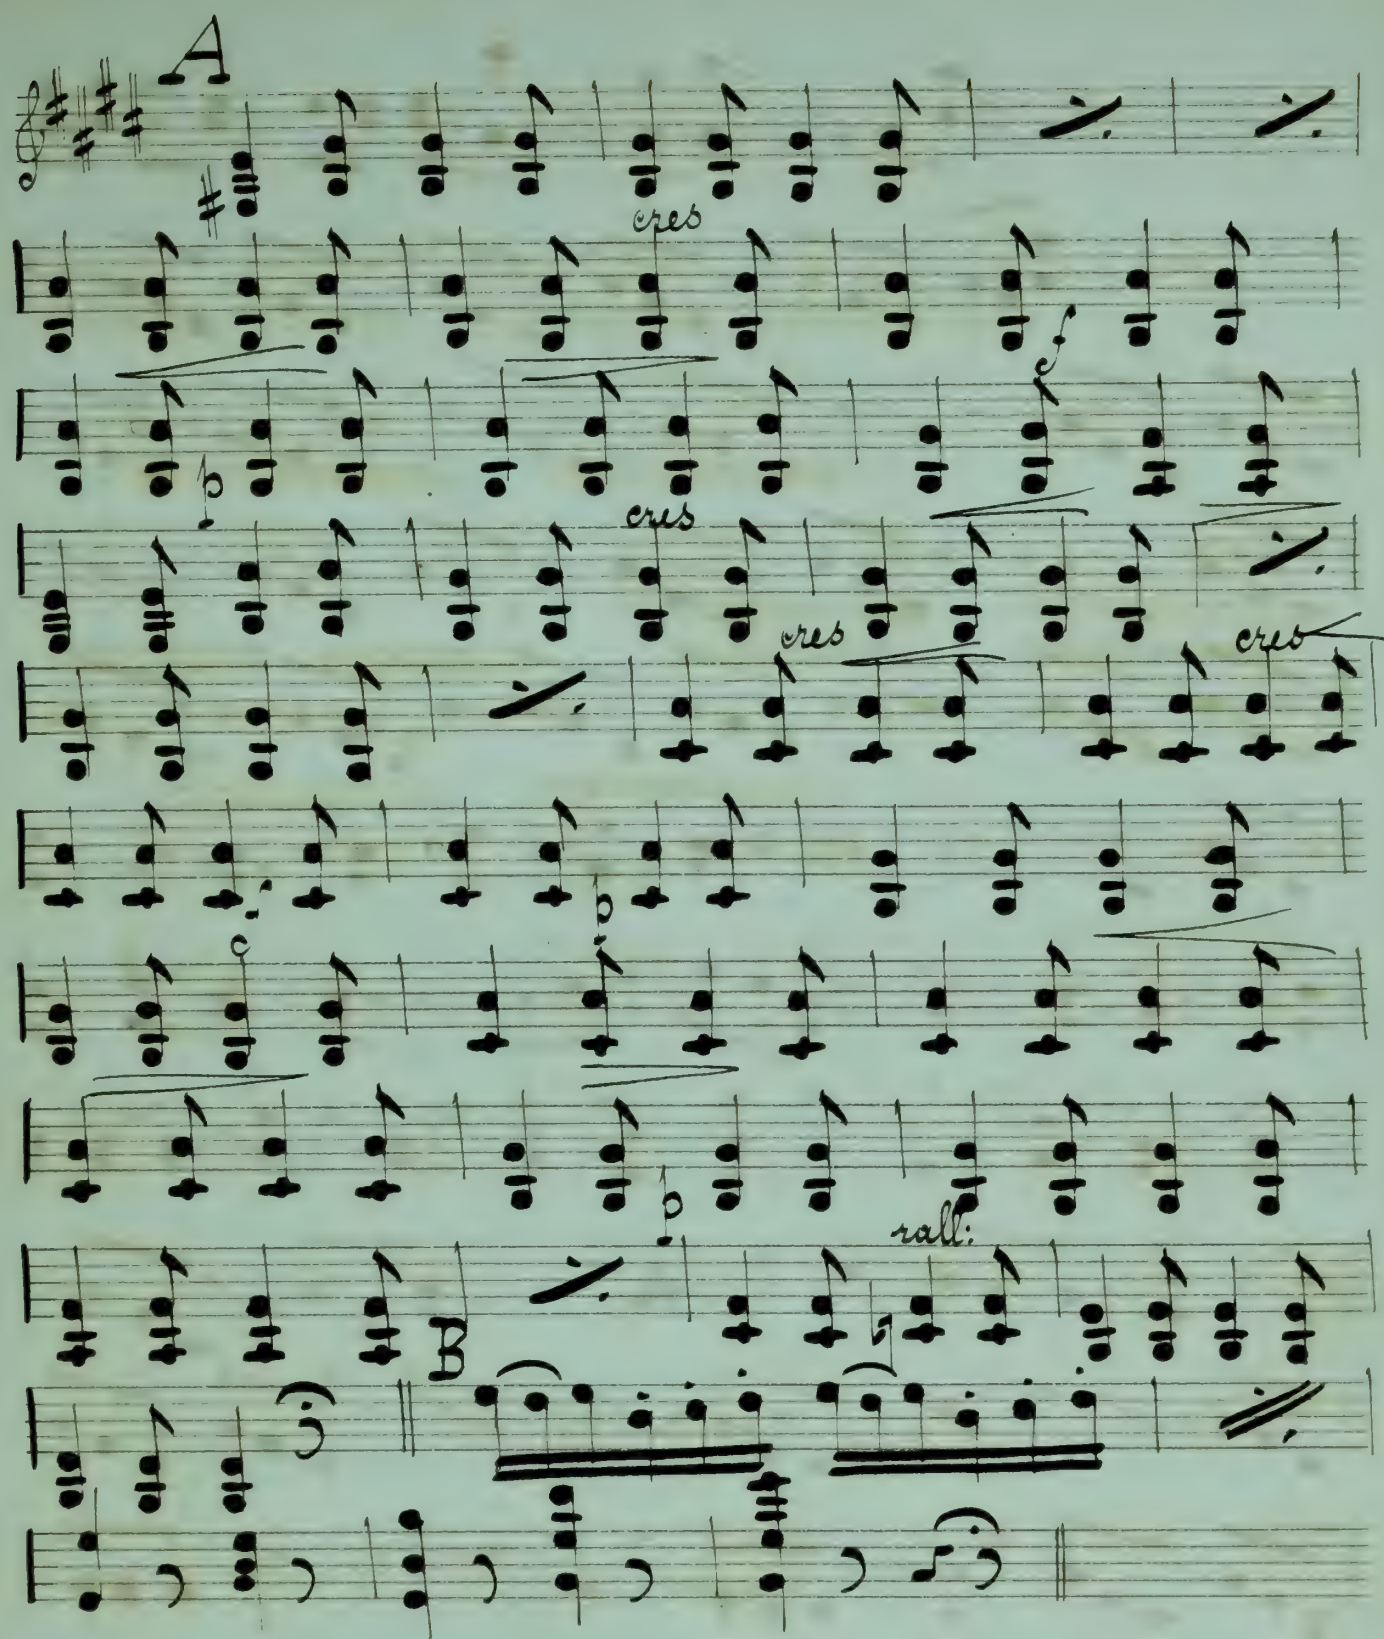 A
cres
f
p
cres
cres cres
f
p
p
rall:
B